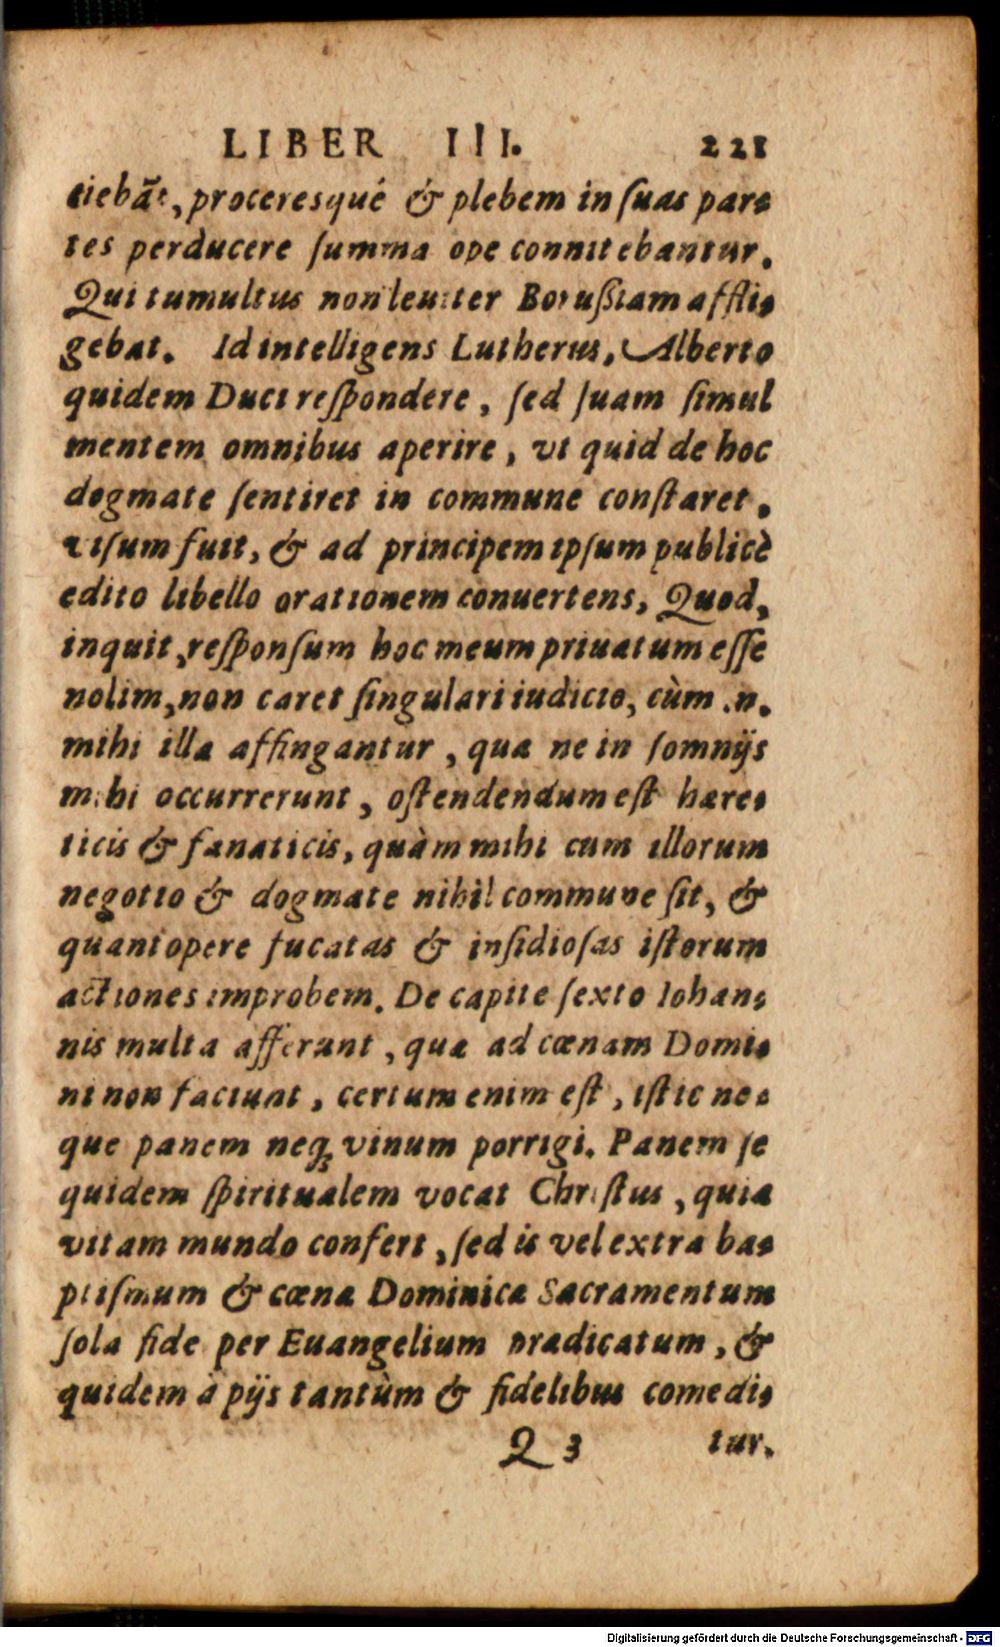 LIBER III. 221
tiebãt, proceresqué & plebem in ſuas par-
tes perducere ſumma ope connitebantur.
Qui tumultus non leuiter Boruſsiam affli-
gebat. Id intelligens Lutherus, Alberto
quidem Duci reſpondere, ſed ſuam ſimul
mentem omnibus aperire, vt quid de hoc
dogmate ſentiret in commune conſtaret.
viſum fuit, & ad principem ipſum publicè
edito libello orationem conuertens, Quod,
inquit, reſponſum hoc meum priuatum eſſe
nolim, non caret ſingulari iudicio, cùm .n.
mihi illa affingantur, quæ ne in ſomnijs
mihi occurrerunt, oſtendendum eſt hære-
ticis & fanaticis, quàm mihi cum illorum
negotio & dogmate nihil commune ſit, &
quantopere fucatas & inſidioſas iſtorum
actiones improbem. De capite ſexto Iohan-
nis multa afferunt, quæ ad cœnam Domi-
ni non faciunt, certum enim eſt, iſtic ne-
que panem neq; vinum porrigi. Panem ſe
quidem ſpiritualem vocat Chriſtus, quia
vitam mundo confert, ſed is vel extra ba-
ptiſmum & cœnæ Dominicæ Sacramentum
ſola fide per Euangelium prædicatum, &
quidem à pijs tantùm & fidelibus comedi-
Q 3 tur.
Digitalisierung gefördert durch die Deutsche Forschungsgemeinschaft - DFG